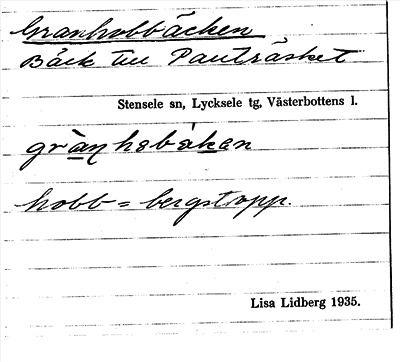 Granhobbäcken
Bäck till Pauträsket
Stensele sn, Lycksele tg, Västerbottens l.
grànhobä̀ken
hobb = bergstopp.
Lisa Lidberg 1935.